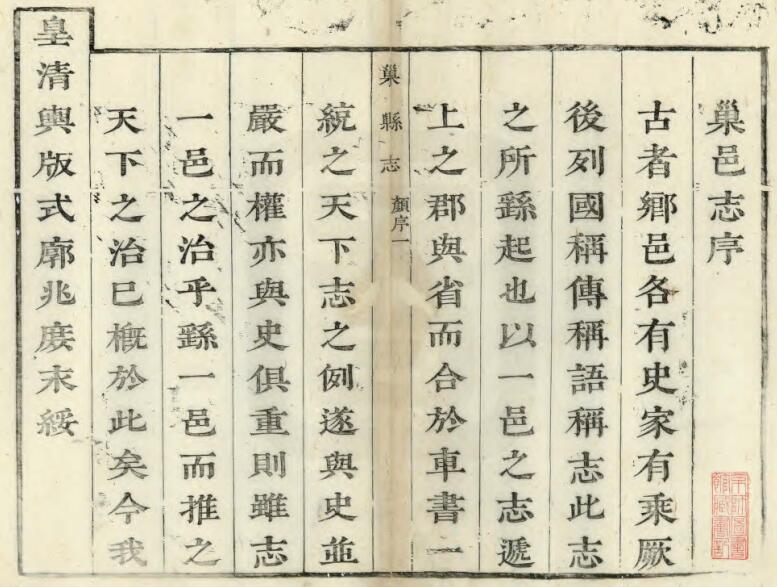 巢邑志序
古者鄉邑各有史家有乘厥
後列國稱傳稱語稱志此志
之所繇起也以一邑之志遞
上之郡與省而合於車書一
巢縣志
顏序一
統之天下志之例遂與史並
嚴而權亦與史俱重則雖志
一邑之治乎繇一邑而推之
天下之治已槪於此矣今我
皇清輿版式廓兆庶末綏